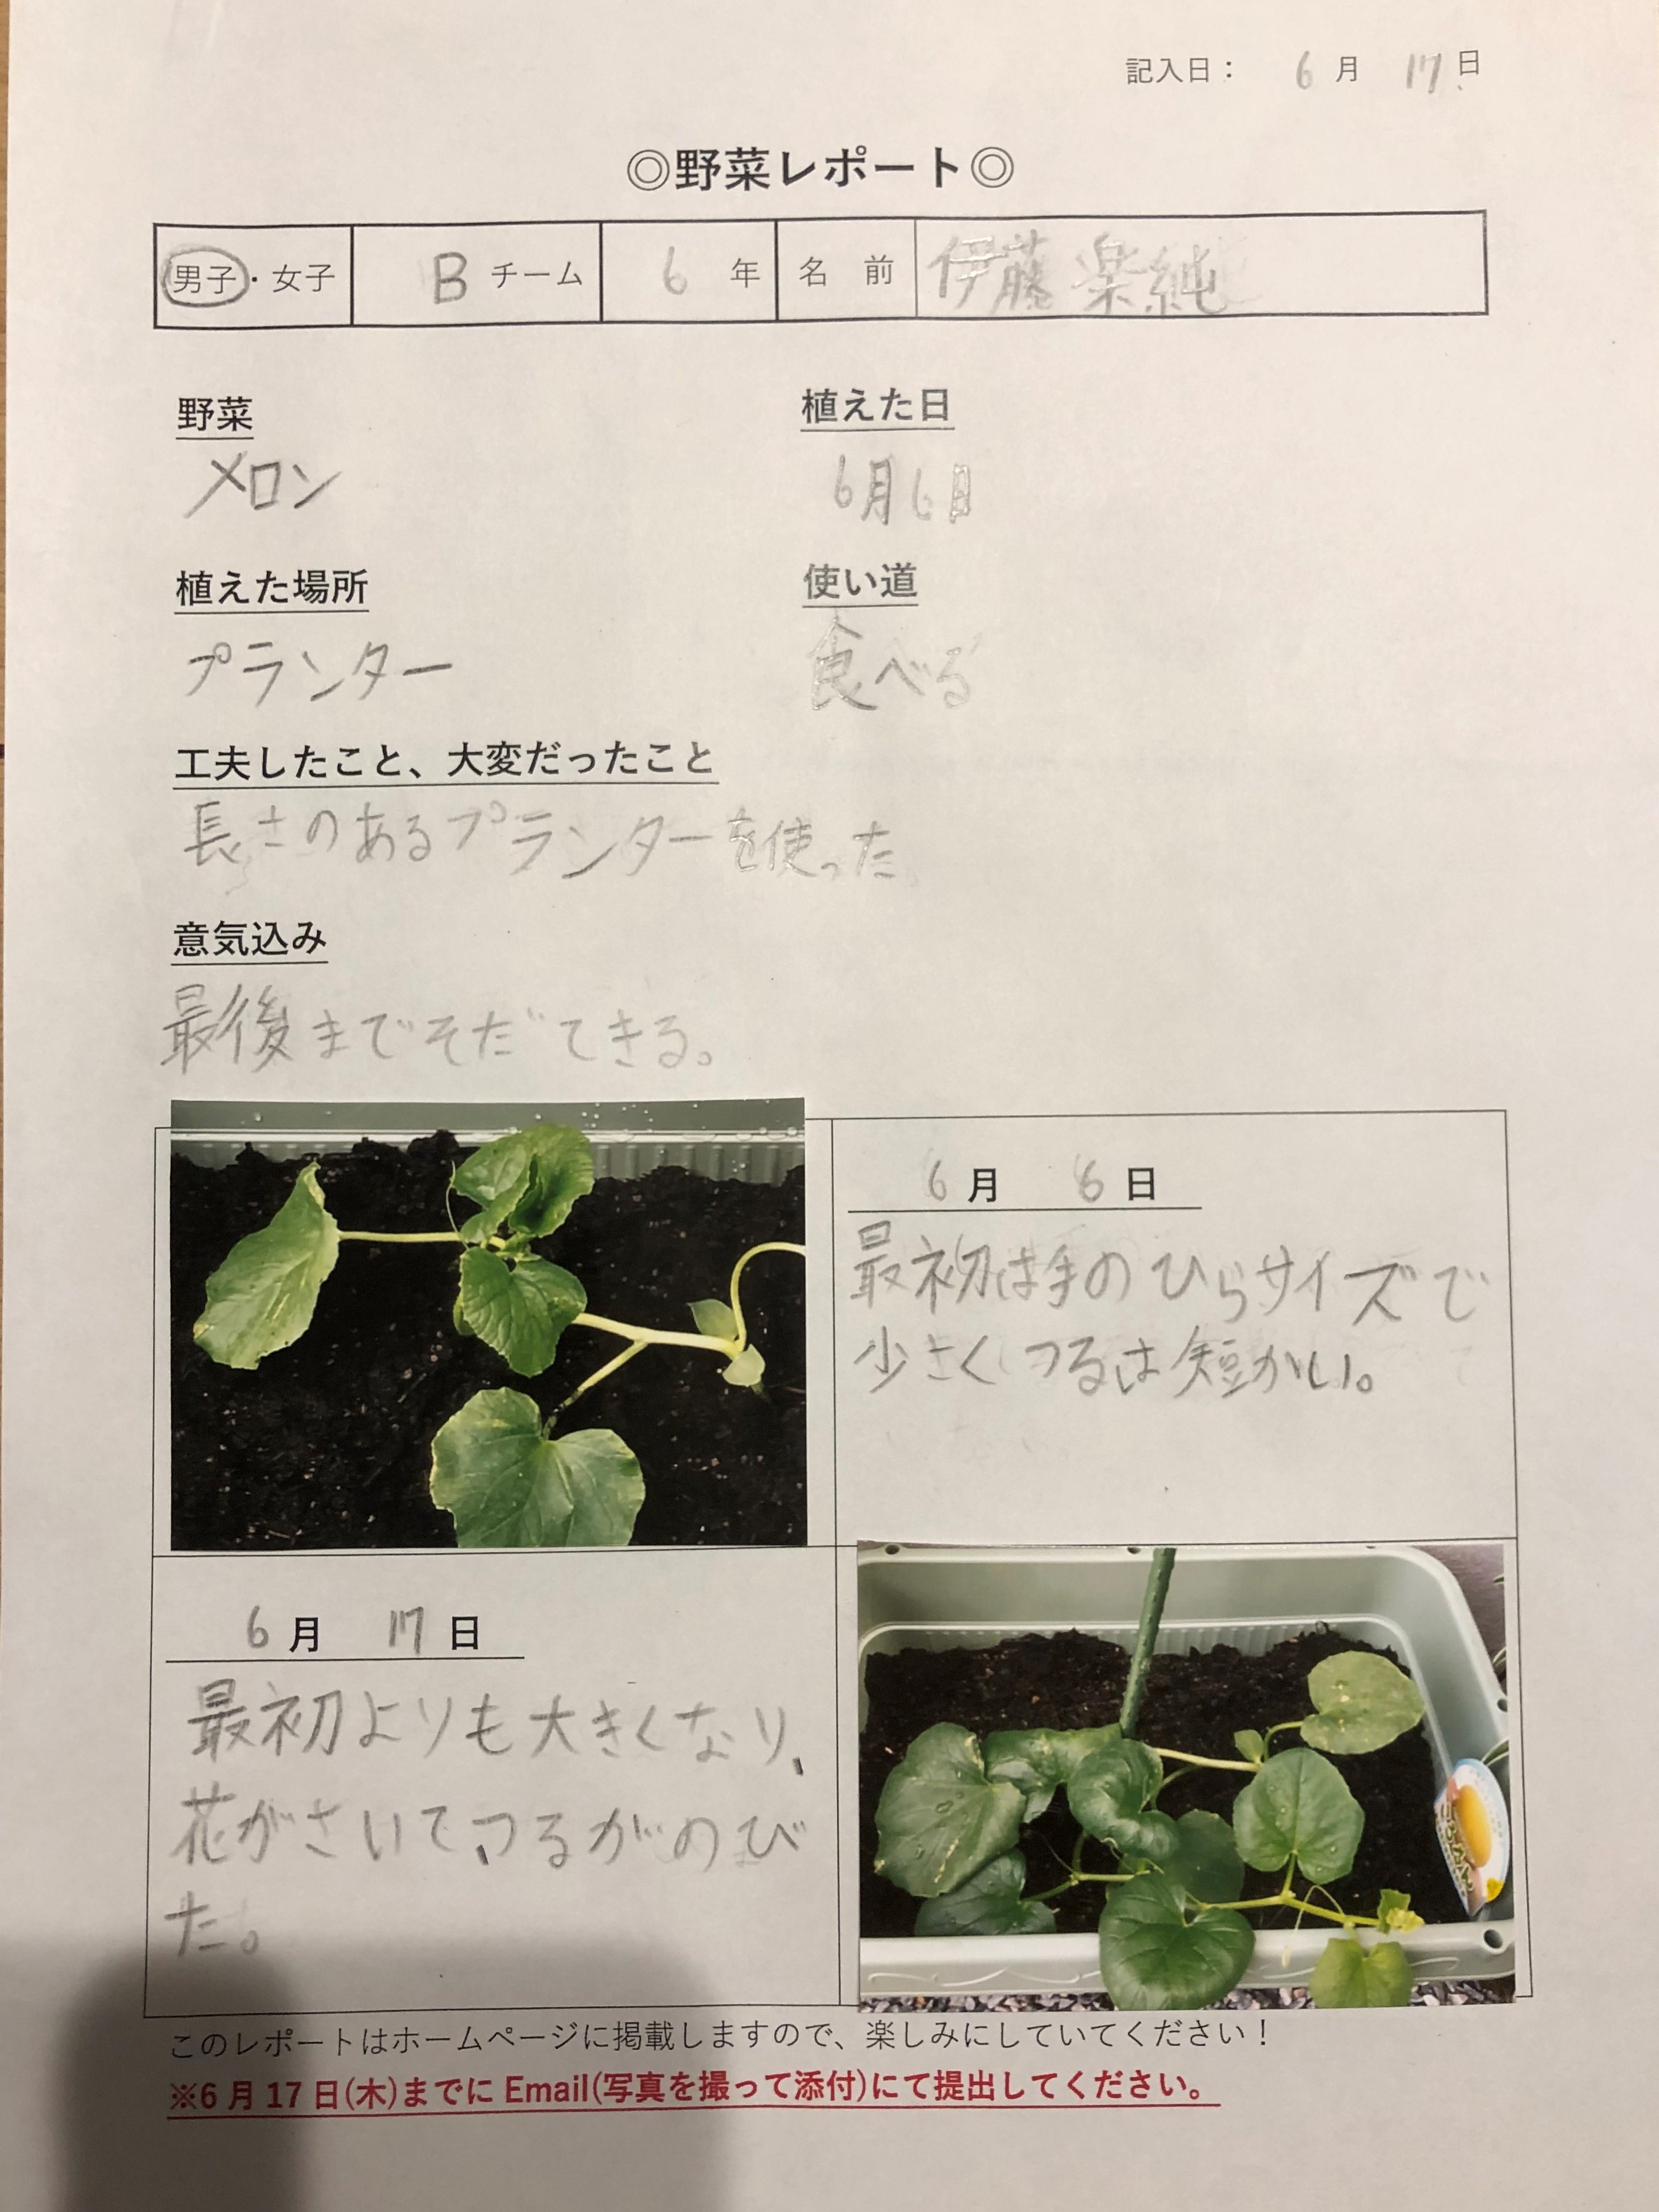 記入日： 6 月 17 日
◎野菜レポート◎
男子・女子 B チーム 6 年 名 前 伊藤 楽純
野菜 植えた日
メロン 6月6日
植えた場所 使い道
プランター 食べる
工夫したこと、大変だったこと
長さのあるプランターを使った
意気込み
最後までそだてきる。
6 月 6 日
最初は手のひらサイズで
少さくつるは短かい。
6 月 17 日
最初よりも大きくなり、
花がさいて、つるがのび
た。
このレポートはホームページに掲載しますので、楽しみにしていてください！
※6 月 17 日(木)までに Email(写真を撮って添付)にて提出してください。